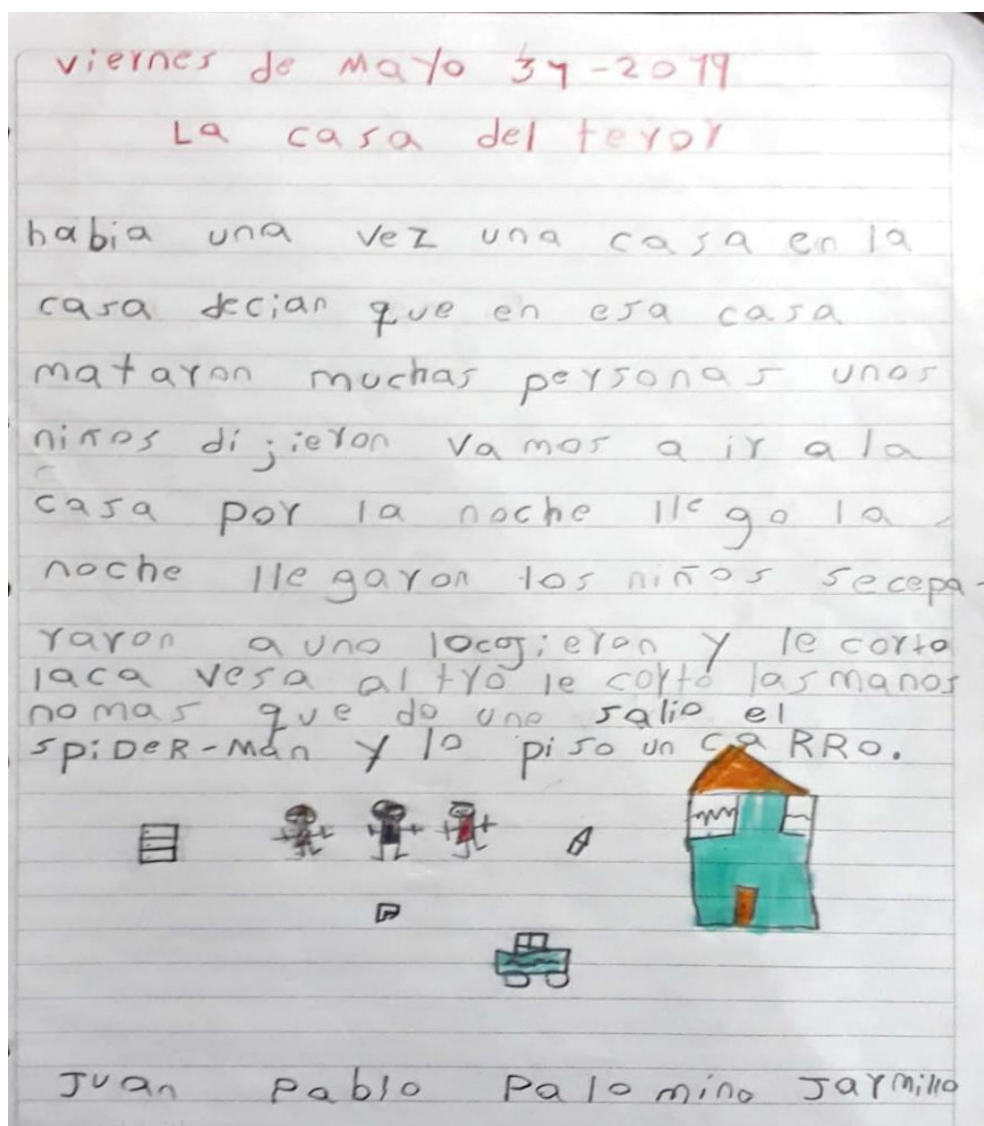 viernes de Mayo 31-2019
La casa del teror
habia una vez una casa en la
casa decian que en esa casa
mataron muchas personas unos
niños dijieron vamos a ir a la
casa por la noche llego la
noche llegaron los niños secepa-
raron a uno locojieron y le corto
laca vesa al tro le corto las manos
no mas que do uno salio el
spiDeR-Man y lo piso un caRRO.
Juan Pablo Palomino Jarmillo